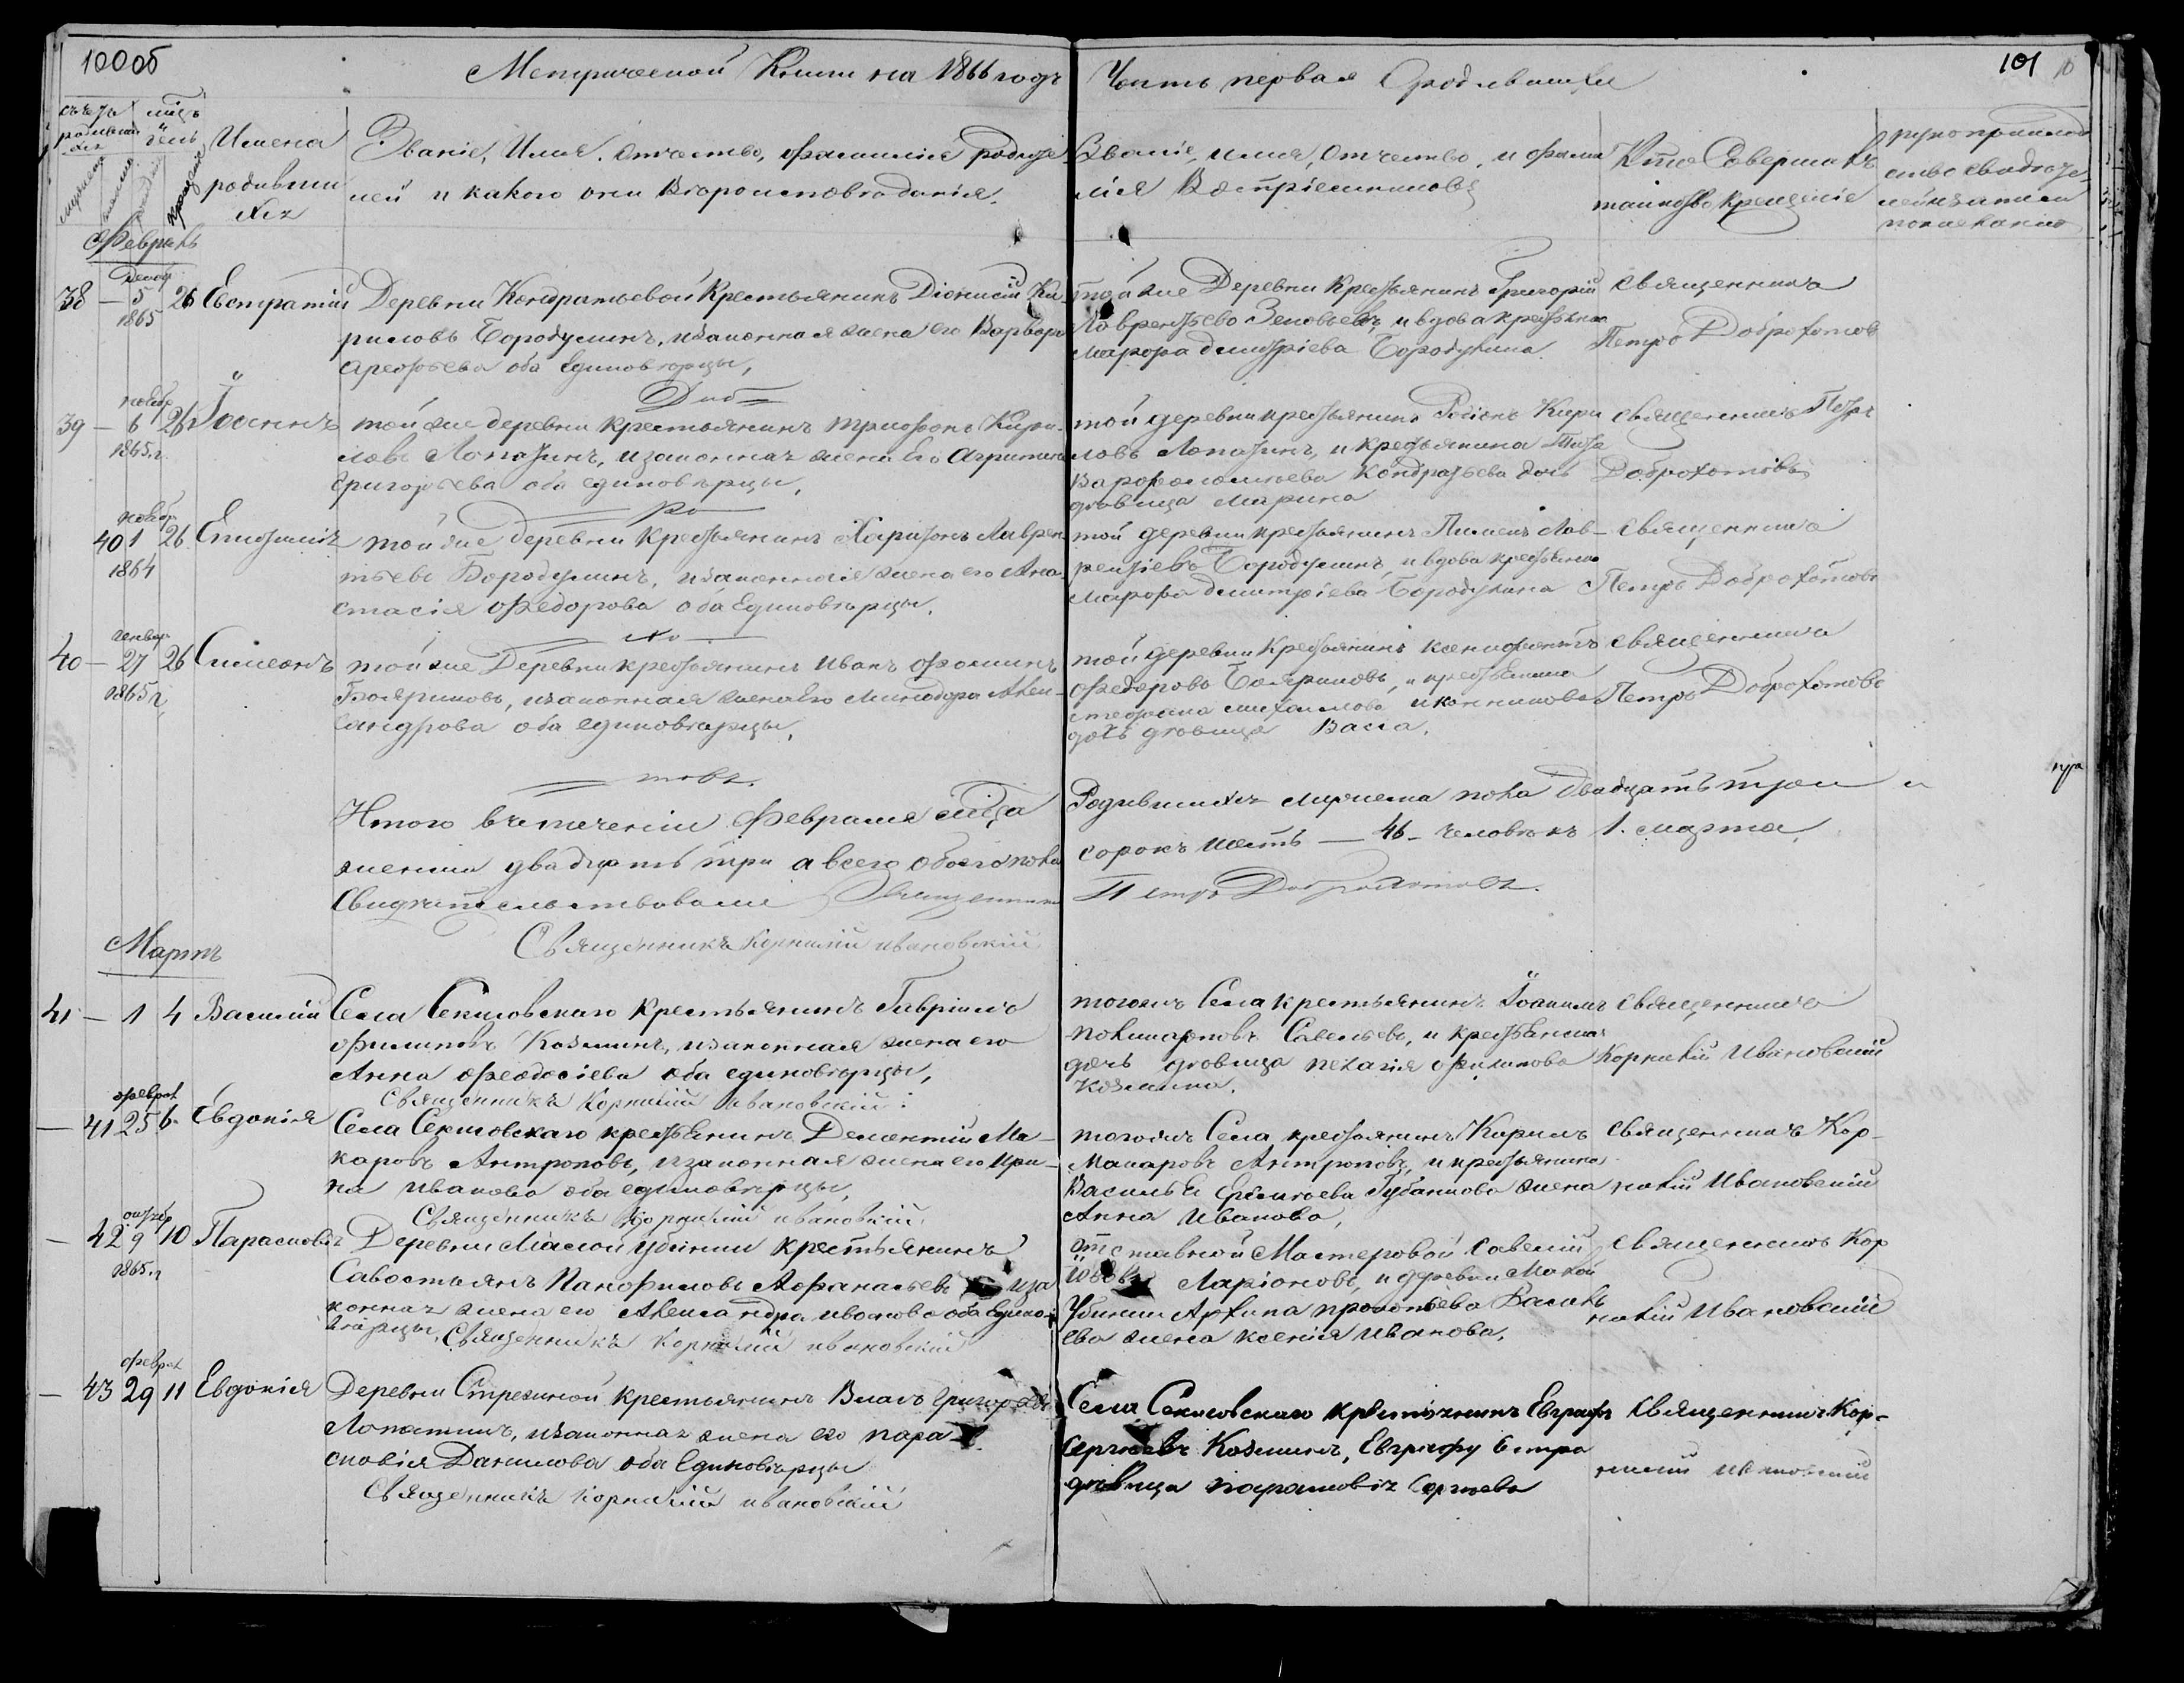 100об
Метрической Книги на 1866 годъ Часть первая О родившихся
101
счетъ родившихся
мужеска
женска
мѣсяцъ и день
рожденія
крещенія
Имена
родивши
хся
Званіе, Имя, отчество, фамилія родите
лей и какого они вѣроисповѣданія.
Званіе, имя, отчество, и фами
лія Воспріемниковъ
Кто Совершалъ
таинство крещеніе
рукоприклад
ство свидѣте
лей записи
по желанію
Февраль
38 – декабр 5 1865 26 Евстратій
Деревни Кондратьевой Крестьянинъ Діонисій Ки-
риловъ Бородулинъ, и законная жена его Варвара
Арефьева оба Единовѣрцы,
той же Деревни Крестьянинъ Григорій
Лаврентьевъ Зеновьевъ, и вдова крестьянка
Марфа Димитріева Бородулина.
Священникъ
Петръ Доброхотовъ
39 – ноябр 6 1865 г. 26 Іоаннъ
той же деревни крестьянинъ Трифонъ Кири-
ловъ Лопатинъ, и законная жена Его Агрипина
Григорьева оба единовѣрцы,
той деревни крестьянинъ Родіонъ Кири
ловъ Лопатинъ, и крестьянина
Варфоломѣева Кондратьева дочь
дѣвица Марина
Священникъ Петръ
Доброхотовъ
40 ноябр 1 1864 26 Епистимія
той же деревни Крестьянинъ Харитонъ Лаврен
тьевъ Бородулинъ, и законная жена его Ана-
стасія Федорова оба Единовѣрцы.
той деревни крестьянинъ Пименъ Лав-
рентіевъ Бородулинъ, и вдова крестьянка
Марфа Димитріева Бородулина
Священникъ
Петръ Доброхотовъ
40 – генвар 27 1865 г. 26 Симеонъ
той же Деревни крестьянинъ Иванъ Фоминъ
Бояриновъ, и законная жена Его Минодора Алек-
сандрова оба единовѣрцы,
той деревни Крестьянинъ Ксенофонтъ
Федоровъ Бояриновъ, и крестьянина
Стефана Михаилова Иконникова
дочь дѣвица Васса.
Священникъ
Петръ Доброхотовъ
товъ.
Итого въ теченіи Февраля мѣсяца
Родившихся мужеска пола двадцать три и
женска двадцать три а всего обоего пола
сорокъ шесть – 46 – человѣкъ 1. марта,
Свидѣтельствовали Священникъ
Петръ Доброхотовъ.
Священникъ Корнилій Ивановскій
Мартъ
41 – 1 4 Василій
Села Секисовскаго Крестьянинъ Гавріилъ
Филиповъ Козминъ, и законная жена его
Анна Феодосіева оба единовѣрцы,
Священникъ Корнилій Ивановскій:
тогожъ Села крестьянинъ Іоакимъ
Поликарповъ Савельевъ, и крестьянина
дочь дѣвица Пелагія Филипова
Козмина.
Священникъ
Корнилій Ивановскій
– 41 феврал 25 6 Евдокія
Села Секисовскаго крестьянинъ Дементій Ма-
каровъ Антроповъ, и законная жена его Ири-
на Иванова оба единовѣрцы,
Священникъ Корнилій Ивановскій
тогожъ Села крестьянинъ Кирилъ
Макаровъ Антроповъ, и крестьянина
Василья Ермолаева Губанкова жена
Анна Иванова,
Священникъ Кор-
нилій Ивановскій
– 42 октябр 9 1865 г. 10 Парасковія
Деревни Малой Убинки крестьянинъ
Савостьянъ Панфиловъ Афанасьевъ и за
конная жена его Александра Иванова оба Едино-
вѣрцы, Священникъ Корнилій Ивановскій
Отставной Мастеровой Савелій
Ларіоновъ, и деревни Малой
Убинки Архипа Прокопьева Василь
ева жена Ксенія Иванова.
Священникъ Кор
нилій Ивановскій
– 43 феврал 29 11 Евдокія
Деревни Стрежной крестьянинъ Власъ Григорьевъ
Лопатинъ, и законная жена его Пара-
сковія Данилова оба Единовѣрцы
Священникъ Корнилій Ивановскій
Села Секисовскаго крестьянинъ Евграфъ
Сергѣевъ Козминъ, Евграфу Сестра
дѣвица Парасковія Сергѣева
Священникъ Кор-
нилій Ивановскій